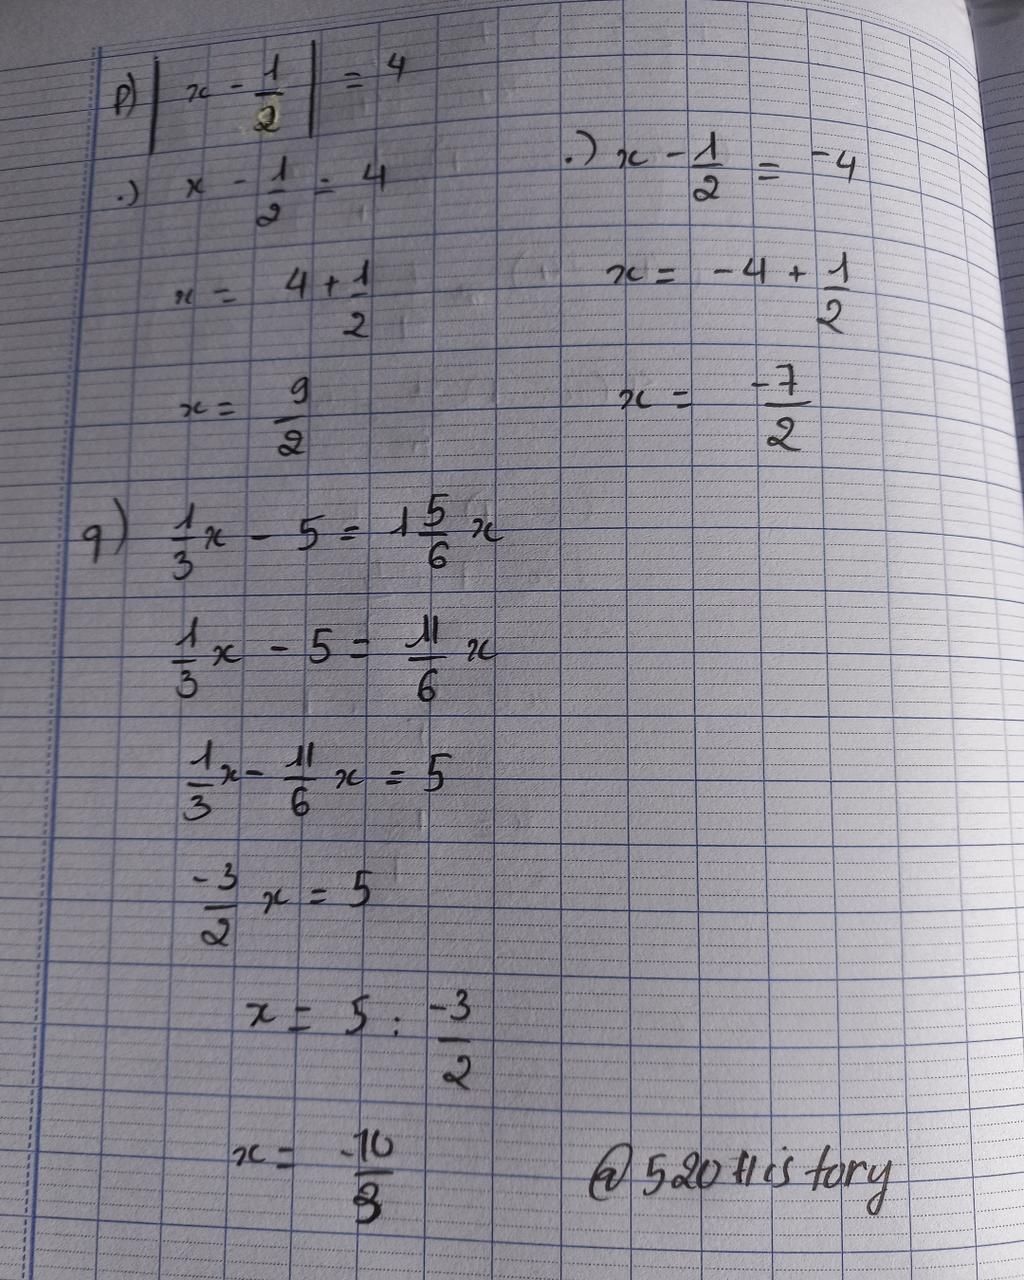 p) |x - 1/2| = 4
.) x - 1/2 = 4
x = 4 + 1/2
x = 9/2
.) x - 1/2 = -4
x = -4 + 1/2
x = -7/2
q) 1/3 x - 5 = 1 5/6 x
1/3 x - 5 = 11/6 x
1/3 x - 11/6 x = 5
-3/2 x = 5
x = 5 : -3/2
x = -10/3
@520History